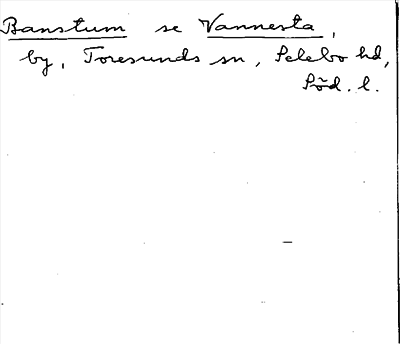 Banstum se Vannesta,
by, Toresunds sn, Selebo hd,
Söd. l.